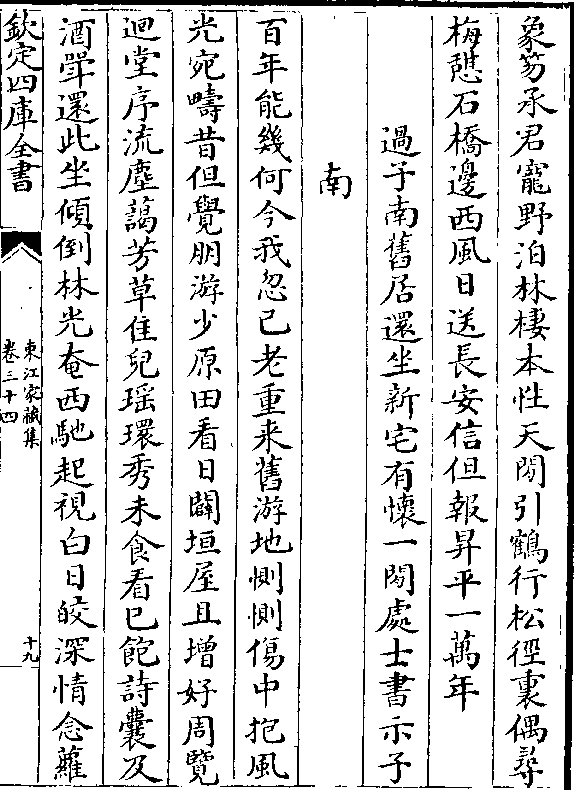 象笏承君寵野泊林棲本性天閒引鶴行松徑裏偶尋
梅憇石橋邊西風日送長安信但報昇平一萬年
過子南舊居還坐新宅有懷一閱處士書示子
南
百年能幾何今我忽已老重来舊游地惻惻傷中抱風
光宛疇昔但覺朋游少原田看日闢垣屋且增好周覽
迴堂序流塵藹芳草佳兒瑶環秀未食看已飽詩囊及
酒斝還此坐傾倒林光奄西馳起視白日皎深情念蘿
欽定四庫全書
東江家藏集
卷三十四
十九